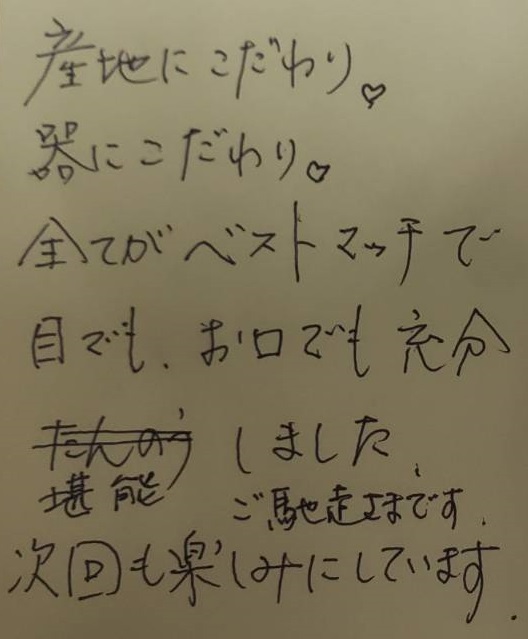 産地にこだわり♡
器にこだわり♡
全てがベストマッチで
目でも、お口でも充分
たんのう しました、
堪能 ご馳走さまです.
次回も楽しみにしています.